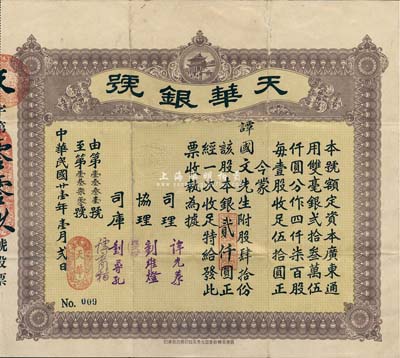 天華銀號
本號額定資本廣東通
用雙毫銀弍拾叁萬伍
仟圓分作四仟柒百股
每壹股收足伍拾圓正
今蒙
譚國文先生附股肆拾份
該股本銀貳仟圓正
經一次收足特給發此
票收執為據
司理
協理 劉維燈
司庫
由第壹叁叁壹號
至第
中華民國廿壹年壹月弍日
No. 009
號股票
上海陽明拍賣